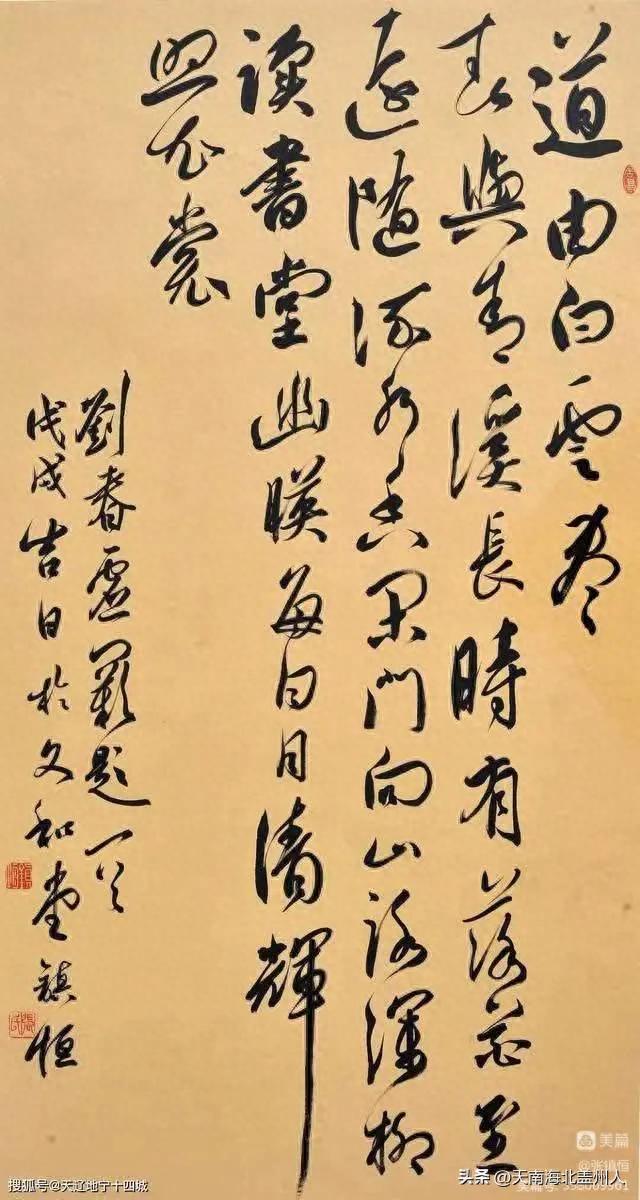 道由白雲盡
春與青溪長時有落花至
遠随流水香閑門向山路深柳
讀書堂幽映每白日清輝
照衣裳
劉春虚闕題一首
戊戌吉日於文和堂鎮恒
美篇
@张镇恒
搜狐号@天辽地宁十四城
头条 @天南海北盖州人